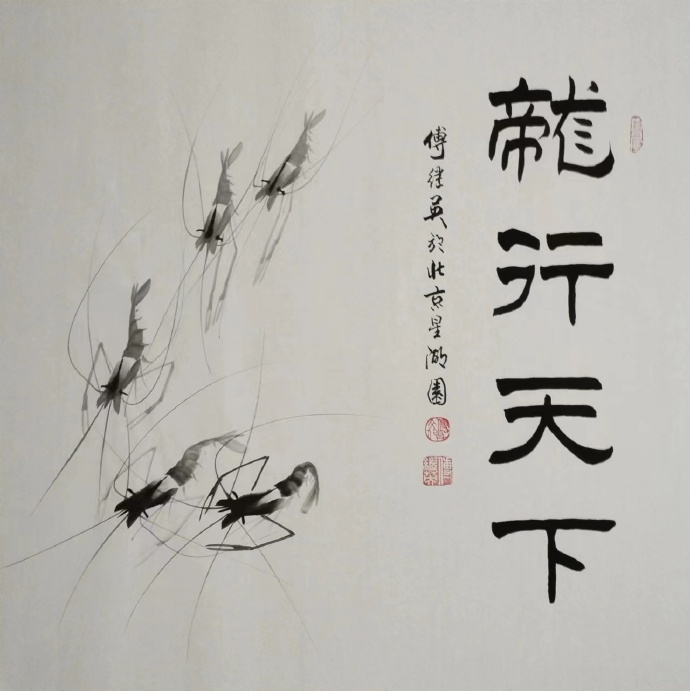 龍行天下
傅继英於北京星湖園